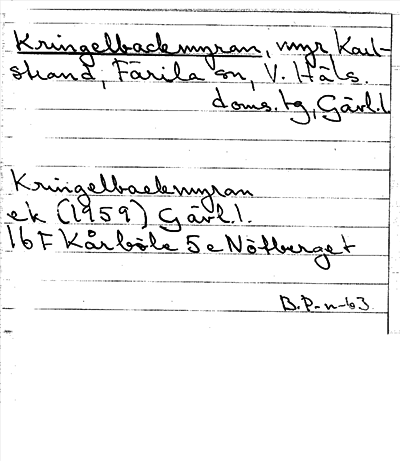 Kringelbackmyran, myr Karl-
strand, Färila sn, V. Häls.
doms. tg, Gävl.l
Kringelbackmyran
ek (1959) Gävl.l.
16 F Kårböle 5 e Nötberget
B.P-n-63